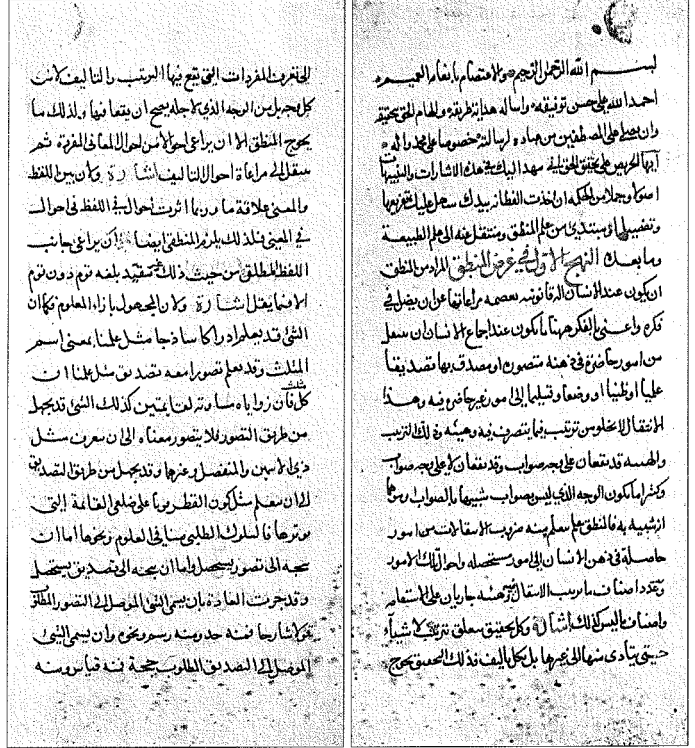 بسم الله الرحمن الرحيم والاعتصام بانعامه العميم
احمد الله على حسن توفيقه واساله هداية طريقه والهام الحق بتحقيقه
وان يصلى على المصطفين من عباده لرسالته خصوصا على محمد واله
ايها الحريص على تحقق الحق انى مهد اليك فى هذه الاشارات والتنبيهات
اصولا وجملا من الحكمه ان اخذت الفطانه بيدك سهل عليك تفريعها
وتفصيلها ومبتدى من علم المنطق ومنتقل عنه الى علم الطبيعة
وما بعده النهج الاول فى غرض المنطق المراد من المنطق
ان يكون عند الانسان اله قانونيه تعصمه مراعاتها عن ان يضل فى
فكره واعنى بالفكر ههنا ما يكون عند اجماع الانسان ان ينتقل
من امور حاضرة فى ذهنه متصوره او مصدق بها تصديقا
علميا او ظنيا او وضعا وتسليما الى امور غير حاضره فيه وهذا
الانتقال لا يخلو من ترتيب فيما يتصرف فيه وهيئه وذلك الترتيب
والهيئه قد يقعان على وجه صواب وقد يقعان لا على وجه صواب
وكثيرا ما يكون الوجه الذى ليس بصواب شبيها بالصواب او موهما
انه شبيه به فالمنطق علم يتعلم منه ضروب الانتقالات من امور
حاصلة فى ذهن الانسان الى امور مستحصله واحوال تلك الامور
وعدد اصناف ما ترتيب الانتقال فيه وهيئته جاريان على الاستقامه
واصناف ما ليس كذلك اشارة وكل تحقيق متعلق بترتيب الاشياء
حتى يتادى منها الى غيرها بل بكل تاليف فذلك التحقيق يحوج
الى تعرف المفردات التى تقع فيها الترتيب والتاليف لا من
كل وجه بل من الوجه الذى لاجله يصح ان يقعا فيها ولذلك ما
يحوج المنطقى الا ان يراعى احوالا من احوال المعانى المفردة ثم
ينتقل الى مراعاة احوال التاليف اشارة ولان بين اللفظ
والمعنى علاقة ما وربما اثرت احوال فى اللفظ فى احوال
فى المعنى فلذلك يلزم المنطقى ايضا ان يراعى جانب
اللفظ المطلق من حيث ذلك غير مقيد بلغه قوم دون قوم
الا فيما يقل اشارة ولان المجهول بازاء المعلوم فكما ان
الشئ قد يعلم ادراكا ساذجا مثل علمنا بمعنى اسم
المثلث وقد يعلم تصورا معه تصديق مثل علمنا ان
كل مثلث فان زواياه مساوية لقائمتين كذلك الشئ قد يجهل
من طريق التصور فلا يتصور معناه الى ان يتعرف مثل
ذى الاسمين والمنفصل وغيرهما وقد يجهل من طريق التصديق
الى ان يتعلم مثل كون القطر قويا على ضلعى القائمة التى
يوترها فالسلوك الطلبى منا فى العلوم ونحوها اما ان
يتجه الى تصور يستحصل واما ان يتجه الى تصديق يستحصل
وقد جرت العادة بان يسمى الشئ الموصل الى التصور المطلوب
قولا شارحا فمنه حد ومنه رسم ونحوه وان يسمى الشئ
الموصل الى التصديق المطلوب حجة فمنه قياس ومنه